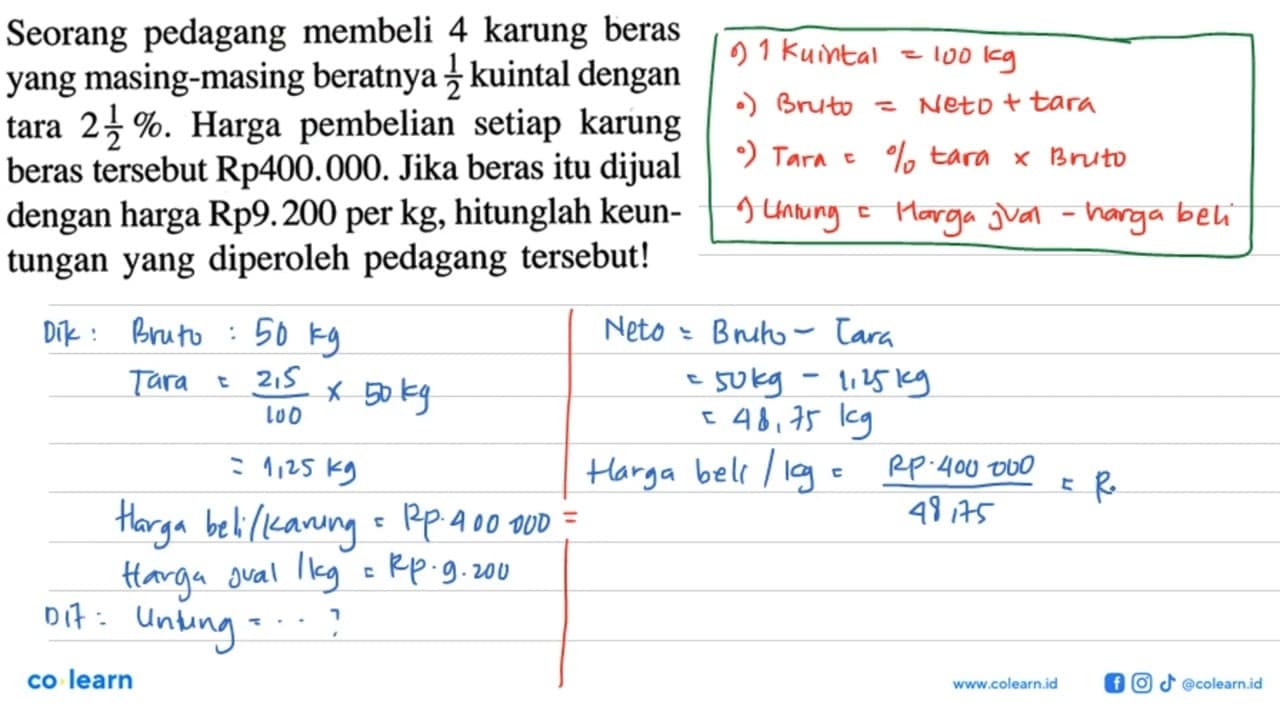 Seorang pedagang membeli 4 karung beras
yang masing-masing beratnya 1/2 kuintal dengan
tara 2 1/2 %. Harga pembelian setiap karung
beras tersebut Rp400.000. Jika beras itu dijual
dengan harga Rp9.200 per kg, hitunglah keun-
tungan yang diperoleh pedagang tersebut!
•) 1 Kuintal = 100 kg
•) Bruto = Neto + tara
•) Tara = % tara x Bruto
•) Untung = Harga jual - harga beli
Dik : Bruto : 50 kg
Tara = 2,5/100 x 50 kg
= 1,25 kg
Harga beli/karung = Rp.400 000 =
Harga jual /kg = Rp.9.200
Dit : Untung = ... ?
Neto = Bruto - Tara
= 50 kg - 1,25 kg
= 48,75 kg
Harga beli /kg = Rp.400 000/48,75 = R.
co learn
www.colearn.id @colearn.id